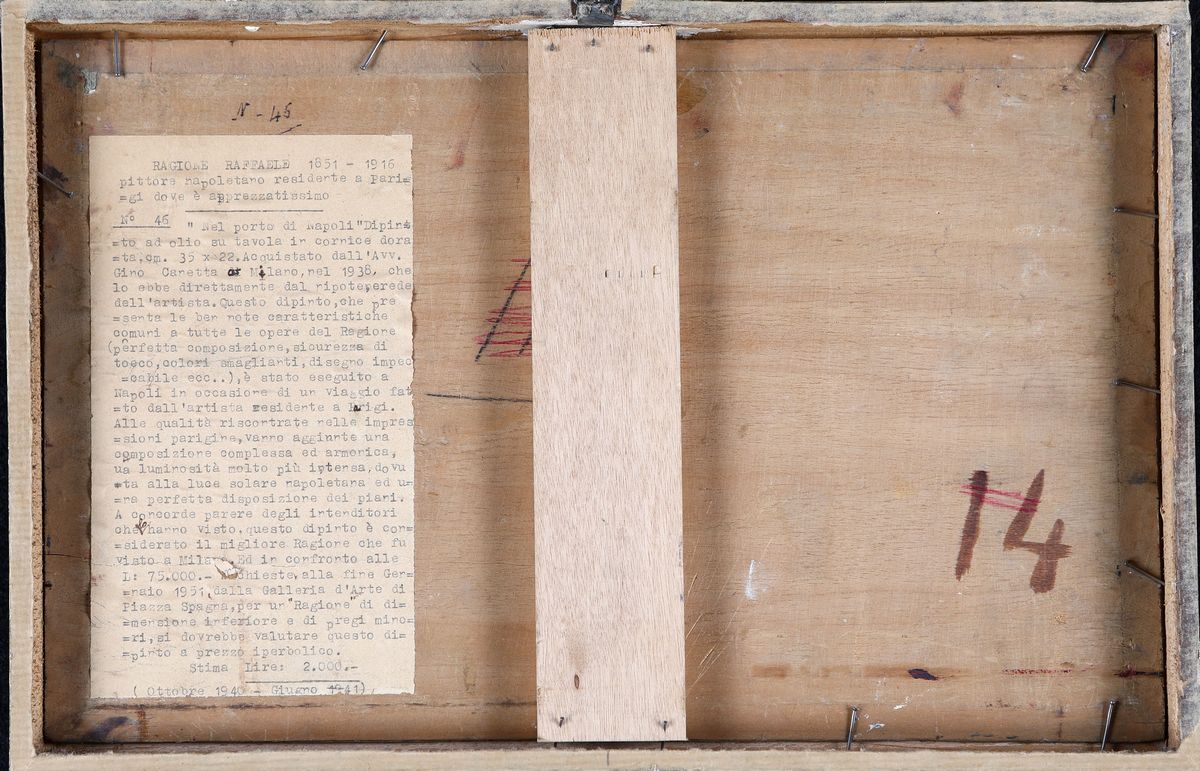 N - 46
RAGIONE RAFFAELE 1851 - 1916
pittore napoletano residente a Pari=
=gi dove è apprezzatissimo
Nº 46 "Nel porto di Napoli"Dipin=
=to ad olio su tavola in cornice dora
=ta,cm. 35 x 22.Acquistato dall'Avv.
Gino Caretta di Milano,nel 1938, che
lo ebbe direttamente dal nipote,erede
dell'artista.Questo dipinto,che pre
=senta le ben note caratteristiche
comuni a tutte le opere del Ragione
(perfetta composizione,sicurezza di
tocco,colori smaglianti,disegno impec
=cabile ecc..),è stato eseguito a
Napoli in occasione di un viaggio fat
=to dall'artista residente a Parigi.
Alle qualità riscontrate nelle impres
=sioni parigine,vanno aggiunte una
composizione complessa ed armonica,
ua luminosità molto più intensa,dovu
=ta alla luce solare napoletana ed u=
=na perfetta disposizione dei piani.
A concorde parere degli intenditori
che hanno visto,questo dipinto è con=
=siderato il migliore Ragione che fu
visto a Milano.Ed in confronto alle
L: 75.000.- richieste,alla fine Gen=
=naio 1951,dalla Galleria d'Arte di
Piazza Spagna,per un"Ragione"di di=
=mensione inferiore e di pregi mino=
=ri,si dovrebbe valutare questo di=
=pinto a prezzo iperbolico.
Stima Lire: 2.000.-
( Ottobre 1940 - Giugno 1941)
14